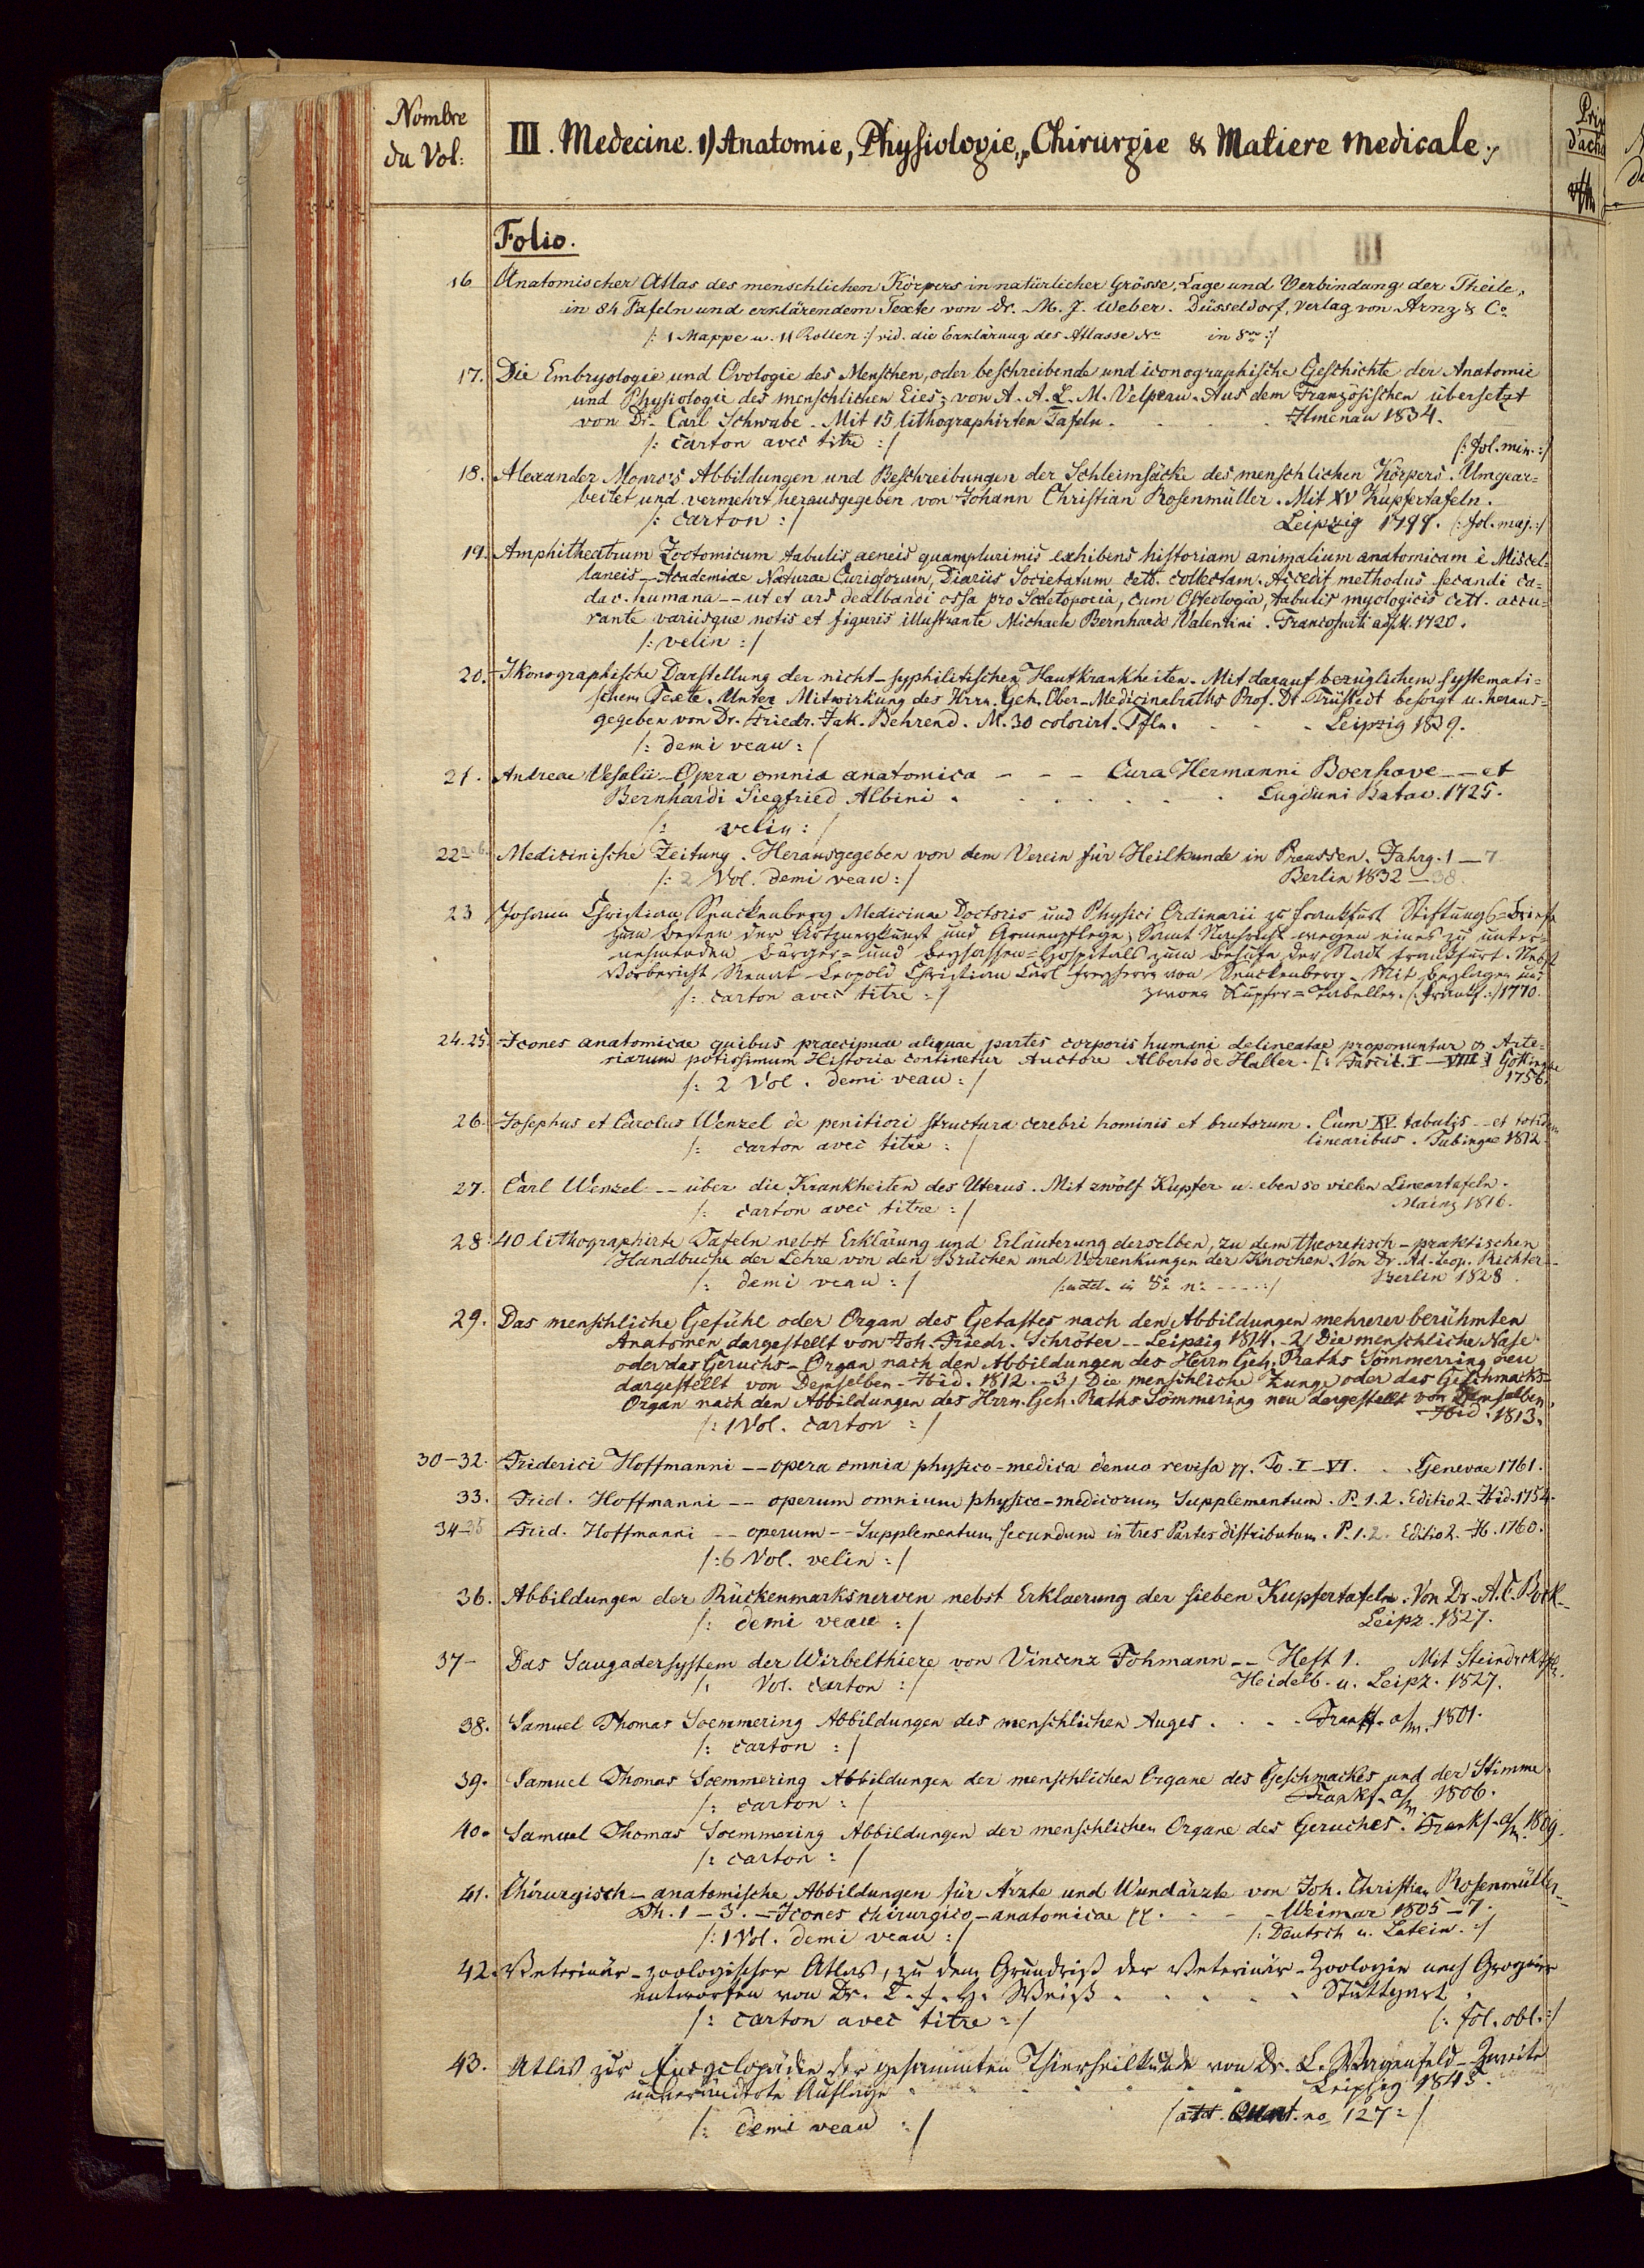 Nombre
du Vol:
III. Medecine. 1) Anatomie, Physiologie, Chirurgie & Matiere medicale.
Prix
d'acha
Folio.
16 Anatomischer Atlas des menschlichen Körpers in natürlicher Grösse, Lage und Verbindung der Theile,
in 84 Tafeln und erklärendem Texte von Dr. M. J. Weber. Düsseldorf, Verlag von Arnz & Co
/: 1 Mappe u. 11 Rollen :/ vid. die Erklärung des Atlasse No in 8vo :/
17. Die Embryologie und Ovologie des Menschen, oder beschreibende und iconographische Geschichte der Anatomie
und Physiologie des menschlichen Eies; von A. A. L. M. Velpeau. Aus dem Französischen übersetzt
von Dr. Carl Schwabe. Mit 15 lithographirten Tafeln. Ilmenau 1834.
/: carton avec titre :/ (: fol. min. :/
18. Alexander Monro's Abbildungen und Beschreibungen der Schleimsäcke des menschlichen Körpers. Umgear=
beitet und vermehrt herausgegeben von Johann Christian Rosenmüller. Mit XV Kupfertafeln.
/: carton :/ Leipzig 1799. (: fol. maj. :/
19. Amphitheatrum Zootomicum tabulis aeneis quamplurimis exhibens historiam animalium anatomicam è Miscel=
laneis - Academiae Naturae Curiosorum, Diariis Societatum cett. collectam. Accedit methodus secandi ca=
dav. humana -- ut et ars dealbandi ossa pro Sceletopoeia, cum Osteologia, tabulis myologicis cett. accu=
rante variisque notis et figuris illustrante Michaele Bernhardo Valentini. Francofurti a/M. 1720.
/: velin :/
20. Ikonographische Darstellung der nicht-syphilitischen Hautkrankheiten. Mit darauf bezüglichem systemati=
schem Texte. Unter Mitwirkung des Hrrn. Geh. Ober-Medicinalraths Prof. Dr. Trüstedt besorgt u. heraus=
gegeben von Dr. Friedr. Jak. Behrend. M. 30 colorirt. Tfln. Leipzig 1839.
/: demi veau :/
21. Andreae Vesalii - Opera omnia anatomica - - - Cura Hermanni Boerhave -- et
Bernhardi Siegfried Albini. Lugduni Batav. 1725.
/: velin :/
22 a. b. Medicinische Zeitung. Herausgegeben von dem Verein für Heilkunde in Preussen. Jahrg. 1 - 7
/: 2 Vol. demi veau :/ Berlin 1832 - 38.
23 Johann Christian Senckenberg Medicinae Doctoris und Physici Ordinarii zu Frankfurt Stiftungs=Briefe
zum Besten der Artzneykunst und Armenpflege; Samt Nachricht wegen eines zu unter=
nehmenden Bürger= und Beysassen=Hospitals zum Behufe der Stadt Frankfurt. Nebst
Vorbericht Renat Leopold Christian Carl Freyherrn von Senckenberg. Mit Beylagen und
/: carton avec titre :/ zwoen Kupfer=Tabellen. (: Frankf. :/ 1770.
24. 25. Icones anatomicae quibus praecipuae aliquae partes corporis humani delineatae proponuntur & Arte=
riarum potissimum Historia continetur Auctore Alberto de Haller. [: Fascic. I - VIII :] Gottingae
/: 2 Vol. demi veau :/ 1756.
26. Josephus et Carolus Wenzel de penitiori structura cerebri hominis et brutorum. Cum XV tabulis -- et totidem
/: carton avec titre :/ linearibus. Tubingae 1812.
27. Carl Wenzel -- über die Krankheiten des Uterus. Mit zwölf Kupfer u. eben so vielen Lineartafeln.
/: carton avec titre :/ Mainz 1816.
28. 40 lithographirte Tafeln nebst Erklärung und Erläuterung derselben, zu dem theoretisch-praktischen
Handbuche der Lehre von den Brüchen und Verrenkungen der Knochen. Von Dr. Ad. Leop. Richter --
/: demi veau :/ Berlin 1828.
29. Das menschliche Gefühl oder Organ des Getastes nach den Abbildungen mehrerer berühmten
Anatomen dargestellt von Joh. Friedr. Schröter -- Leipzig 1814. - 2) Die menschliche Nase
oder das Geruchs-Organ nach den Abbildungen des Herrn Geh. Raths Sömmerring neu
dargestellt von Demselben - Ibid. 1812. - 3) Die menschliche Zunge oder das Geschmacks-
Organ nach den Abbildungen des Hrrn. Geh. Raths Sömmering neu dargestellt von Demselben,
/: 1 Vol. carton :/ Ibid. 1813.
30-32. Friderici Hoffmanni -- opera omnia physico-medica denuo revisa pp. To. I - VI. Genevae 1761.
33. Frid. Hoffmanni -- operum omnium physico-medicorum Supplementum. P. 1. 2. Editio 2. Ibid. 1754.
34-35 Frid. Hoffmanni -- operum -- Supplementum secundum in tres Partes distributum. P. 1. 2. Editio 2. Ib. 1760.
/: 6 Vol. velin :/
36. Abbildungen der Rückenmarksnerven nebst Erklaerung der sieben Kupfertafeln. Von Dr. A. C. Bock --
/: demi veau :/ Leipz. 1827.
37- Das Saugadersystem der Wirbelthiere von Vincenz Fohmann -- Heft 1. Mit Steindrcktfln.
/: Vol. carton :/ Heidelb. u. Leipz. 1827.
38. Samuel Thomas Soemmering Abbildungen des menschlichen Auges. Frankf. a/m. 1801.
/: carton :/
39. Samuel Thomas Soemmering Abbildungen der menschlichen Organe des Geschmackes und der Stimme.
/: carton :/ Frankf. a/m. 1806.
40. Samuel Thomas Soemmering Abbildungen der menschlichen Organe des Geruches. Frankf. a/m. 1809.
/: carton :/
41. Chirurgisch-anatomische Abbildungen für Ärzte und Wundärzte von Joh. Christian Rosenmüller --
Th. 1 - 3. - Icones chirurgico-anatomicae pp. Weimar 1805 - 7.
/: 1 Vol. demi veau :/ /: Deutsch u. Latein. :/
42. Veterinär-zoologischer Atlas, zu dem Grundriß der Veterinär-Zoologie nach Grognier
entworfen von Dr. C. F. H. Weiß. Stuttgart.
/: carton avec titre :/ (: fol. obl. :/
43. Atlas zur Encyclopädie der gesammten Thierheilkunde von Dr. L. Wagenfeld - Zweite
unveränderte Auflage Leipzig 1843.
/: demi veau :/ /: Quart. no 127 :/